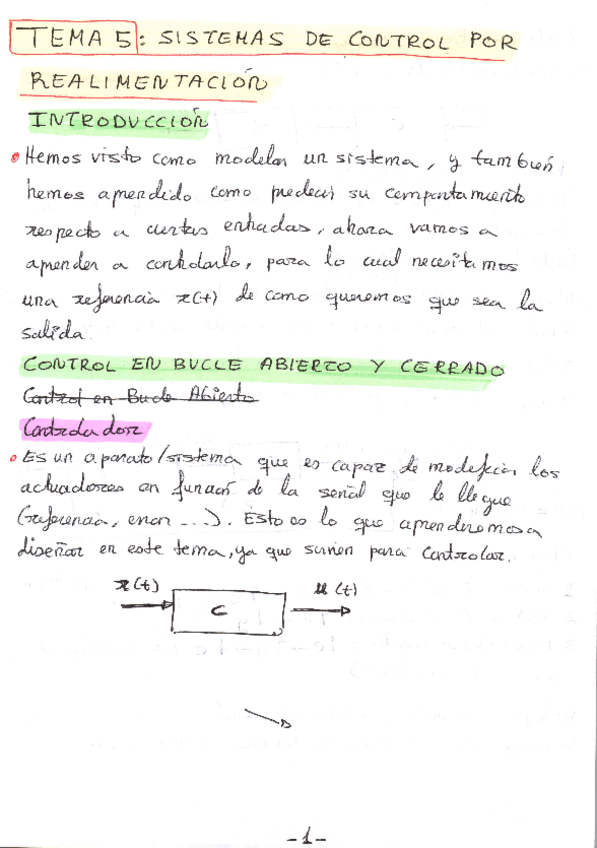 TEMA 5: SISTEMAS DE CONTROL POR
REALIMENTACIÓN
INTRODUCCIÓN
• Hemos visto como modelar un sistema, y también
hemos aprendido como predecir su comportamiento
respecto a ciertas entradas, ahora vamos a
aprender a controlarlo, para lo cual necesitamos
una referencia r(t) de como queremos que sea la
salida
CONTROL EN BUCLE ABIERTO Y CERRADO
Control en Bucle Abierto
Controlador
• Es un aparato/sistema que es capaz de modificar los
actuadores en función de la señal que le llegue
(referencia, error ...). Esto es lo que aprenderemos a
diseñar en este tema, ya que sirven para controlar.
r(t) C u(t)
-1-